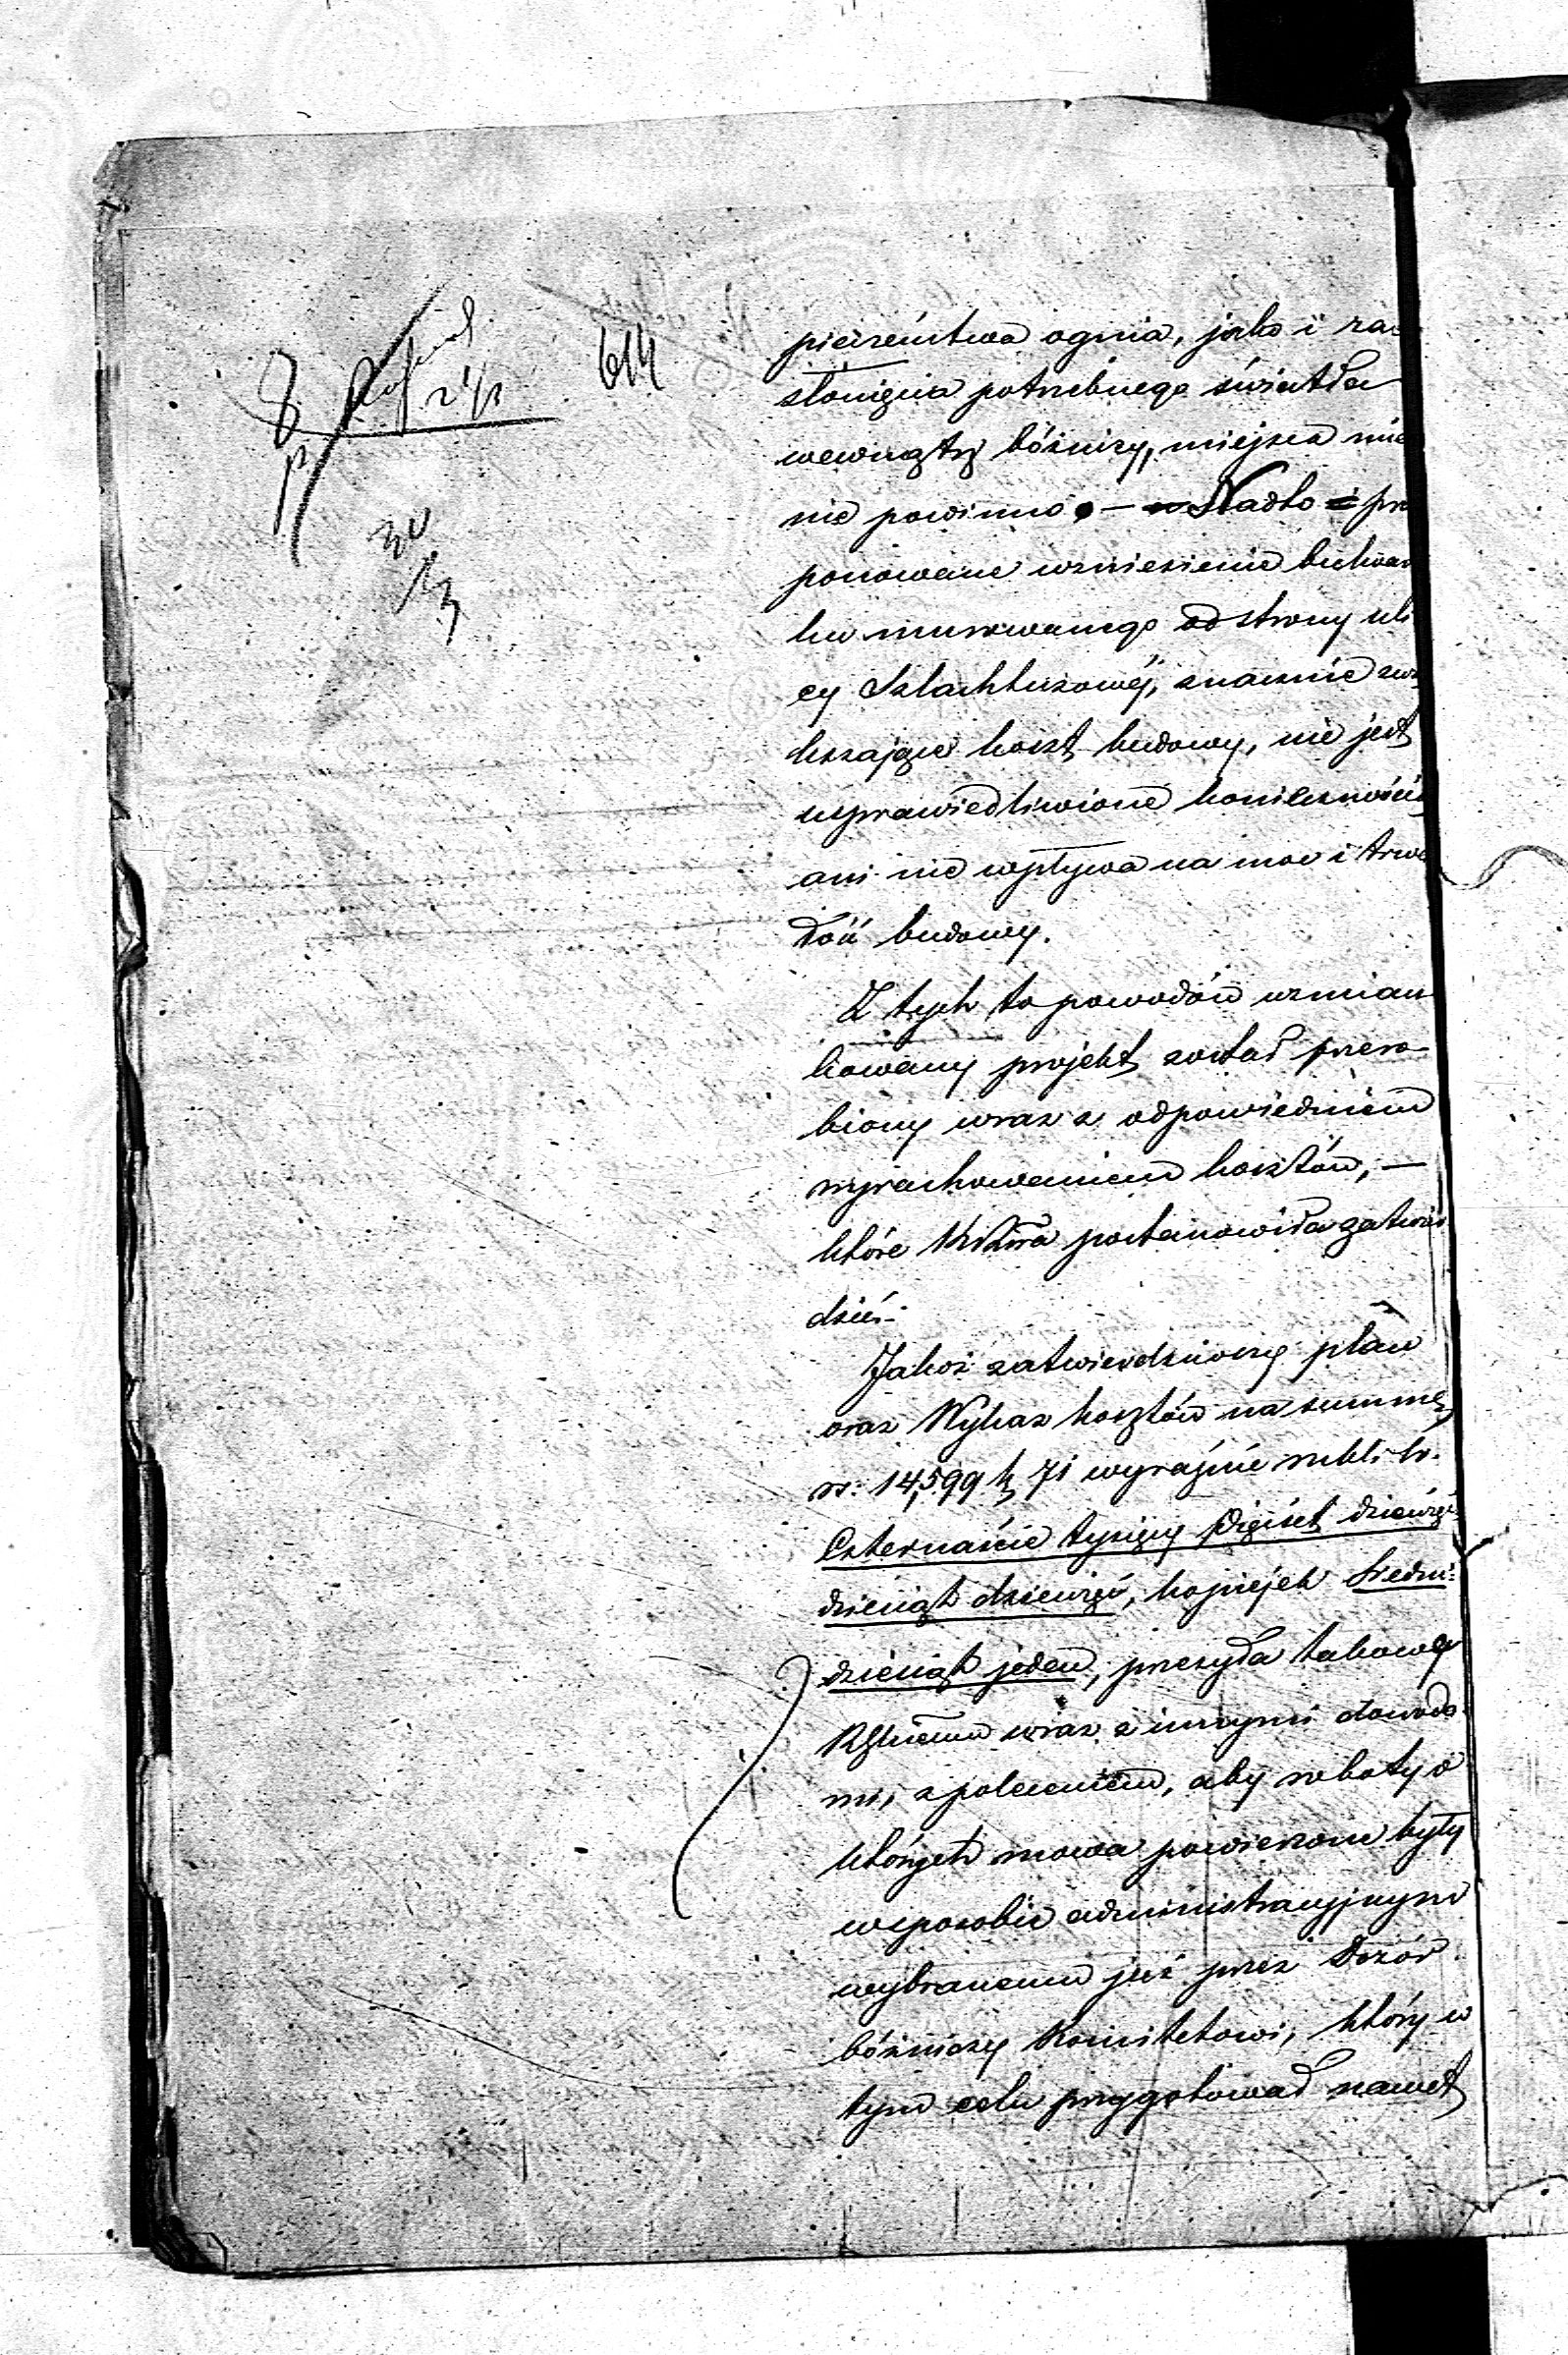 614
pieczeństwa ognia, jako i za
słonięcia potrzebnego światła
wewnątrz bóżnicy, miejsca mie
nie powinno. — Nadto pro
ponowane wzniesienie budwan
ku murowanego od strony uli
cy Szlachtuzowéj, znacznie zwię
kszające koszt budowy, nie jest
usprawiedliwione koniecznością
ani nie wpływa na moc i trwa
łość budowy.
Z tych to powodów wzmian
kowany projekt został przero-
biony wraz z odpowiedniem
wyrachowaniem kosztów, —
które postanowiła zatwier
dzić.
Jakoż zatwierdziony plan
oraz Wykaz kosztów na summę
rs: 14,599 k 71 wyraźnie rubli sr.
Czternaście tysięcy pięćset dziewięć
dziesiąt dziewięć, kopiejek siedm:
dziesiąt jeden, przesyła takowy
wraz z innymi dowoda
mi, z poleceniem, aby roboty o
których mowa powierzone były
w sposobie administracyjnym
wybranemu już przez Dozór
bóżniczy Komitetowi, który w
tym celu przygotował nawet